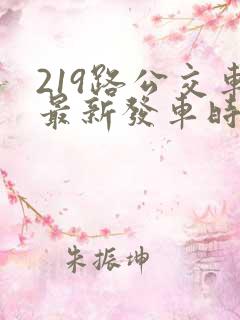 219路公交車
最新發車時
朱振坤